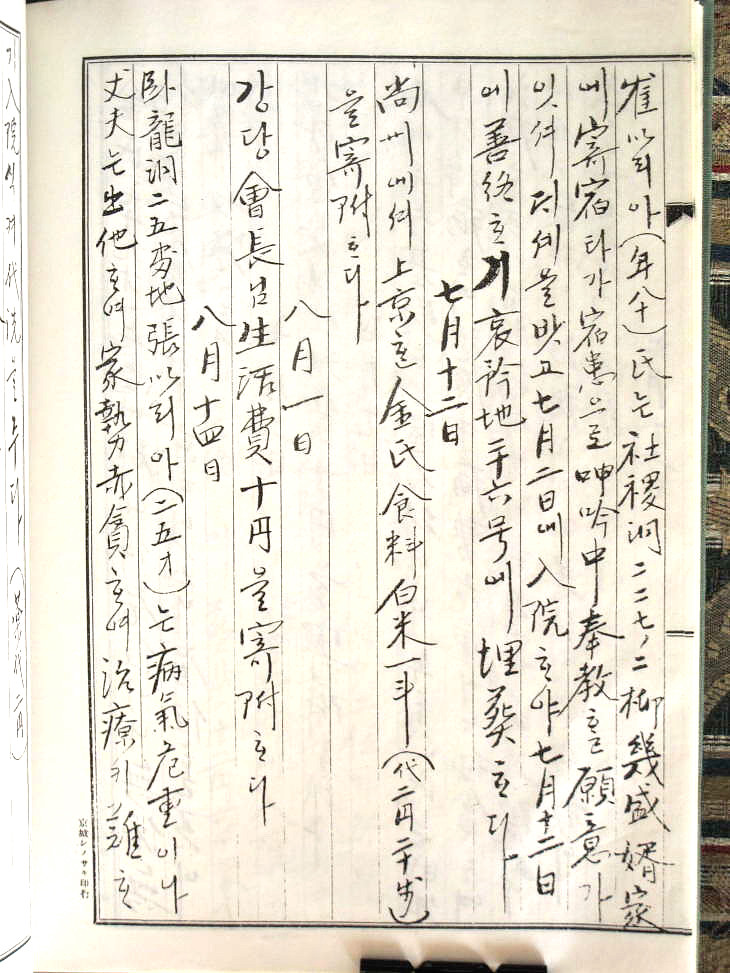 崔막달아(年八十)氏는 社稷洞 二二七ノ二 柳幾盛 婿家
에 寄宿타가 宿患으로 呻吟中 奉教할 願意가
잇셔 되세을 밧고 七月二日에 入院하야 七月十二日
에 善終하기 哀矜地 二十六号에 埋葬하다
七月十二日
尚州에셔 上京한 金氏 食料 白米一斗(代二円二十戋)
을 寄附하다
八月一日
강당 會長님 生活費 十円을 寄附하다
八月十四日
臥龍洞 二五番地 張막달아(二五才)는 病氣危重이나
丈夫는 出他하여 家勢赤貧하여 治療키 難하
入院식여 代洗을 주다
京城シノサキ印行